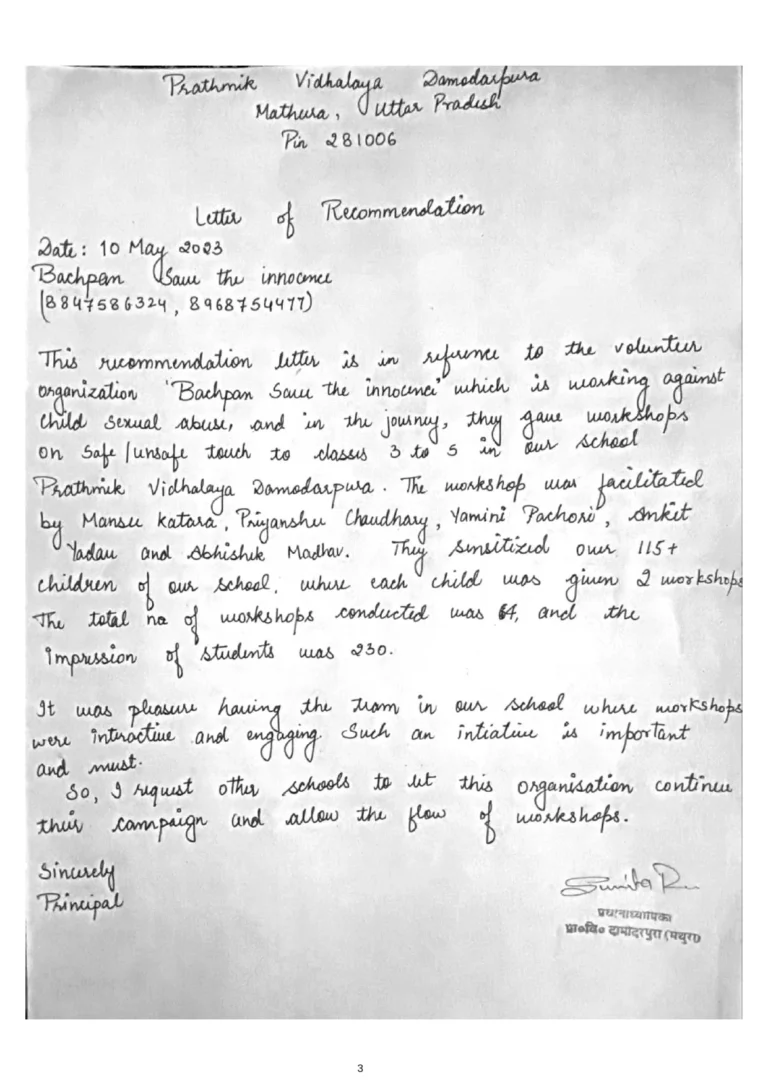 Prathmik Vidhalaya Damodarpura
Mathura, Uttar Pradesh
Pin 281006
Letter of Recommendation
Date: 10 May 2023
Bachpan Save the innocence
(8847586324, 8968754477)
This recommendation letter is in reference to the volunteer
organization "Bachpan Save the innocence" which is working against
child sexual abuse, and in the journey, they gave workshops
on Safe/unsafe touch to classes 3 to 5 in our school
Prathmik Vidhalaya Damodarpura. The workshop was facilitated
by Mansee Katara, Priyanshu Chaudhary, Yamini Pachori, Ankit
Yadav and Abhishek Madhav. They sensitized over 115+
children of our school, where each child was given 2 workshops
The total no of workshops conducted was 64, and the
impression of students was 230.
It was pleasure having the team in our school where workshops
were interactive and engaging. Such an intiative is important
and must.
So, I request other schools to let this organisation continue
their campaign and allow the flow of workshops.
Sincerely
Principal
Sunita
प्रधानाध्यापिका
प्रा०वि० दामोदरपुरा (मथुरा)
3